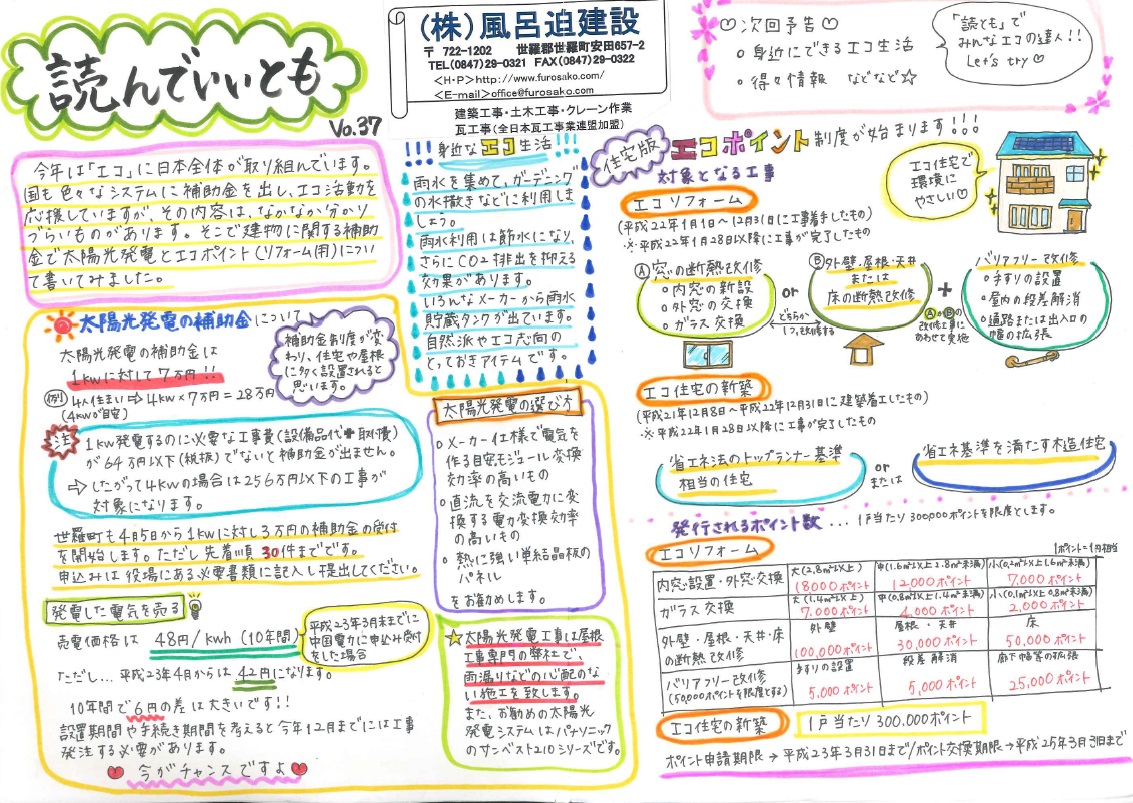 読んでいいとも
Vo.37
(株)風呂迫建設
〒 722-1202　世羅郡世羅町安田657-2
TEL(0847)29-0321　FAX(0847)29-0322
<H・P>http://www.furosako.com/
<E-mail>office@furosako.com
建築工事・土木工事・クレーン作業
瓦工事(全日本瓦工事業連盟加盟)
♡次回予告♡
○身近にできるエコ生活
○得々情報　などなど☆
「読とも」で
みんなエコの達人!!
Let's try♡
今年は「エコ」に日本全体が取り組んでいます。
国も色々なシステムに補助金を出し、エコ活動を
応援していますが、その内容は、なかなか分かり
づらいものがあります。そこで建物に関する補助
金で太陽光発電とエコポイント(リフォーム用)につい
て書いてみました。
太陽光発電の補助金について
太陽光発電の補助金は
1kwに対して7万円!!
例 4人住まい⇨4kw×7万円=28万円
(4kwが目安)
補助金制度が変
わり、住宅や屋根
に多く設置されると
思います。
注 1kw発電するのに必要な工事費(設備品代+取付費)
が64万以下(税抜)でないと補助金が出ません。
⇨したがって4kwの場合は256万以下の工事が
対象になります。
世羅町も4月5日から1kwに対し3万円の補助金の受付
を開始します。ただし先着順30件までです。
申込みは役場にある必要書類に記入し提出してください。
発電した電気を売る
売電価格は　48円/kwh(10年間)
平成23年3月末までに
中国電力に申込み受付
をした場合
ただし…平成23年4月からは42円になります。
10年間で6円の差は大きいです!!
設置期間や手続き期間を考えると今年12月までには工事
発注する必要があります。
今がチャンスですよ
!!!身近なエコ生活!!!
雨水を集めて、ガーデニング
の水撒きなどに利用しま
しょう。
雨水利用は節水になり、
さらにCO2排出を抑える
効果があります。
いろんなメーカーから雨水
貯蔵タンクが出ています。
自然派やエコ志向の
とっておきアイテムです。
太陽光発電の選び方
○メーカー仕様で電気を
作る目安モジュール変換
効率の高いもの
○直流を交流電力に変
換する電力変換効率
の高いもの
○熱に強い単結晶板の
パネル
をお勧めします。
☆太陽光発電工事は屋根
工事専門の弊社で、
雨漏りなどの心配のな
い施工を致します。
また、お勧めの太陽光
発電システムはパナソニック
のサンベスト210シリーズです。
住宅版 エコポイント制度が始まります!!!
対象となる工事
エコ住宅で
環境に
やさしい♡
エコリフォーム
(平成22年1月1日〜12月31日に工事着手したもの)
※平成22年1月28日以降に工事が完了したもの
Ⓐ窓の断熱改修
○内窓の新設
○外窓の交換
○ガラス交換
or
どちらか
1つ、改修する
Ⓑ外壁・屋根・天井
または
床の断熱改修
+
ⒶかⒷの
改修工事に
あわせて実施
バリアフリー改修
○手すりの設置
○屋内の段差解消
○通路または出入口の
幅の拡張
エコ住宅の新築
(平成21年12月8日〜平成22年12月31日に建築着工したもの)
※平成22年1月28日以降に工事が完了したもの
省エネ法のトップランナー基準
相当の住宅
or
または
省エネ基準を満たす木造住宅
発行されるポイント数 …1戸当たり300,000ポイントを限度とします。
エコリフォーム
1ポイント=1円相当
内窓・設置・外窓・交換　大(2.8㎡以上)　中(1.6㎡以上2.8㎡未満)　小(0.2㎡以上1.6㎡未満)
18000ポイント　12,000ポイント　7,000ポイント
ガラス交換　大(1.4㎡以上)　中(0.8㎡以上1.4㎡未満)　小(0.1㎡以上0.8未満)
7,000ポイント　4,000ポイント　2,000ポイント
外壁・屋根・天井・床　外壁　屋根・天井　床
の断熱改修　100,000ポイント　30,000ポイント　50,000ポイント
バリアフリー改修　手すりの設置　段差解消　廊下幅等の拡張
(50,000ポイントを限度とする)　5,000ポイント　5,000ポイント　25,000ポイント
エコ住宅の新築　1戸当たり300.000ポイント
ポイント申請期限→平成23年3月31日まで/ポイント交換期限→平成25年3月31日まで